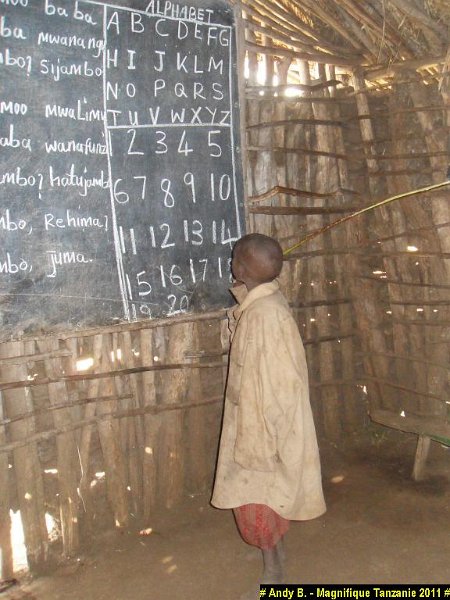 moo baba
baba mwanang
mbo? sijambo
moo mwalimu
baba wanafunz
ambo? hatujamb
mbo, Rehima?
mbo, juma.
ALPHABET
A B C D E F G
H I J K L M
N O P Q R S
T U V W X Y Z
1 2 3 4 5
6 7 8 9 10
11 12 13 14
15 16 17 18
19 20
# Andy B. - Magnifique Tanzanie 2011 #